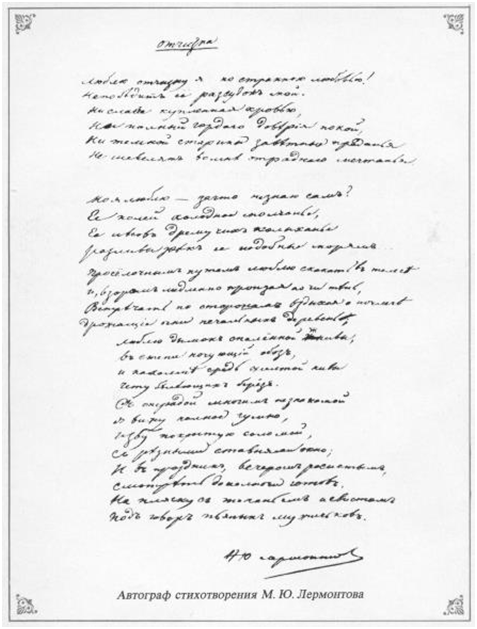 Отчизна
Люблю отчизну я но странною любовью!
Непобедитъ ее разсудокъ мой.
Ни слава купленная кровью,
Ни полный гордаго доверiя покой,
Ни темной старины заветныя преданья
Не шевелятъ во мне отраднаго мечтанья
Но я люблю — за что незнаю самъ?
Ее полей холодное молчанье,
Ее лесовъ дремучихъ колыханье
разливы рекъ ее подобные морямъ...
Просёлочнымъ путемъ люблю скакать въ телеге
И, взоромъ медленно пронзая ночи тень,
Встречать по сторонамъ, вздыхая о ночлеге
дрожащiе огни печальныхъ деревень;
люблю дымокъ спалённой жнивы,
въ степи кочующiй обозъ,
и на холме средь желтой нивы
чету белеющихъ берёзъ.
Съ отрадой многимъ незнакомой
я вижу полное гумно,
избу покрытую соломой,
Съ резными ставнями окно;
И въ праздникъ, вечеромъ росистымъ,
смотреть до полночи готовъ
На пляску съ топаньемъ и свистомъ
Подъ говоръ пьяныхъ мужичковъ.
М Ю Лермонтов
Автограф стихотворения М. Ю. Лермонтова